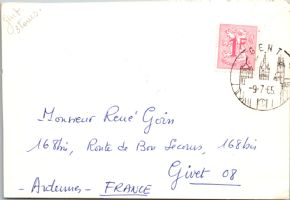 GENT
1F
-9-7-65
Monsieur René Goin
168bis, Route de Bon Secours, 168bis
Givet 08
- Ardennes - FRANCE